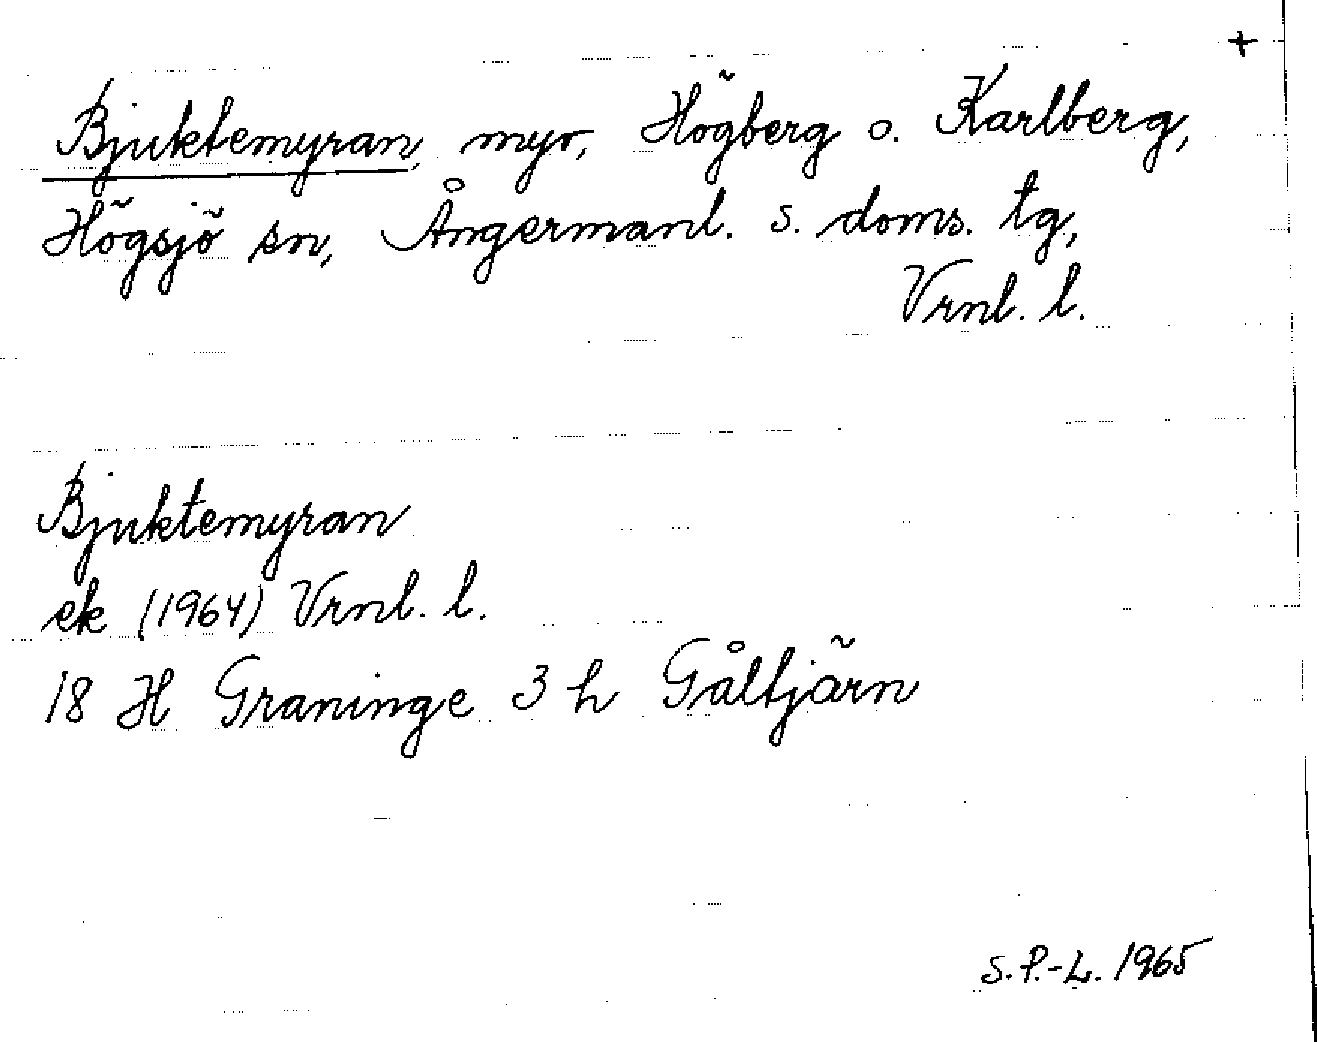 +
Bjuktemyran, myr, Högberg o. Karlberg,
Högsjö sn, Ångermanl. s. doms. tg,
Vrnl. l.
Bjuktemyran
ek (1964) Vrnl. l.
18 H Graninge 3 h Gåltjärn
S.P.-L. 1965